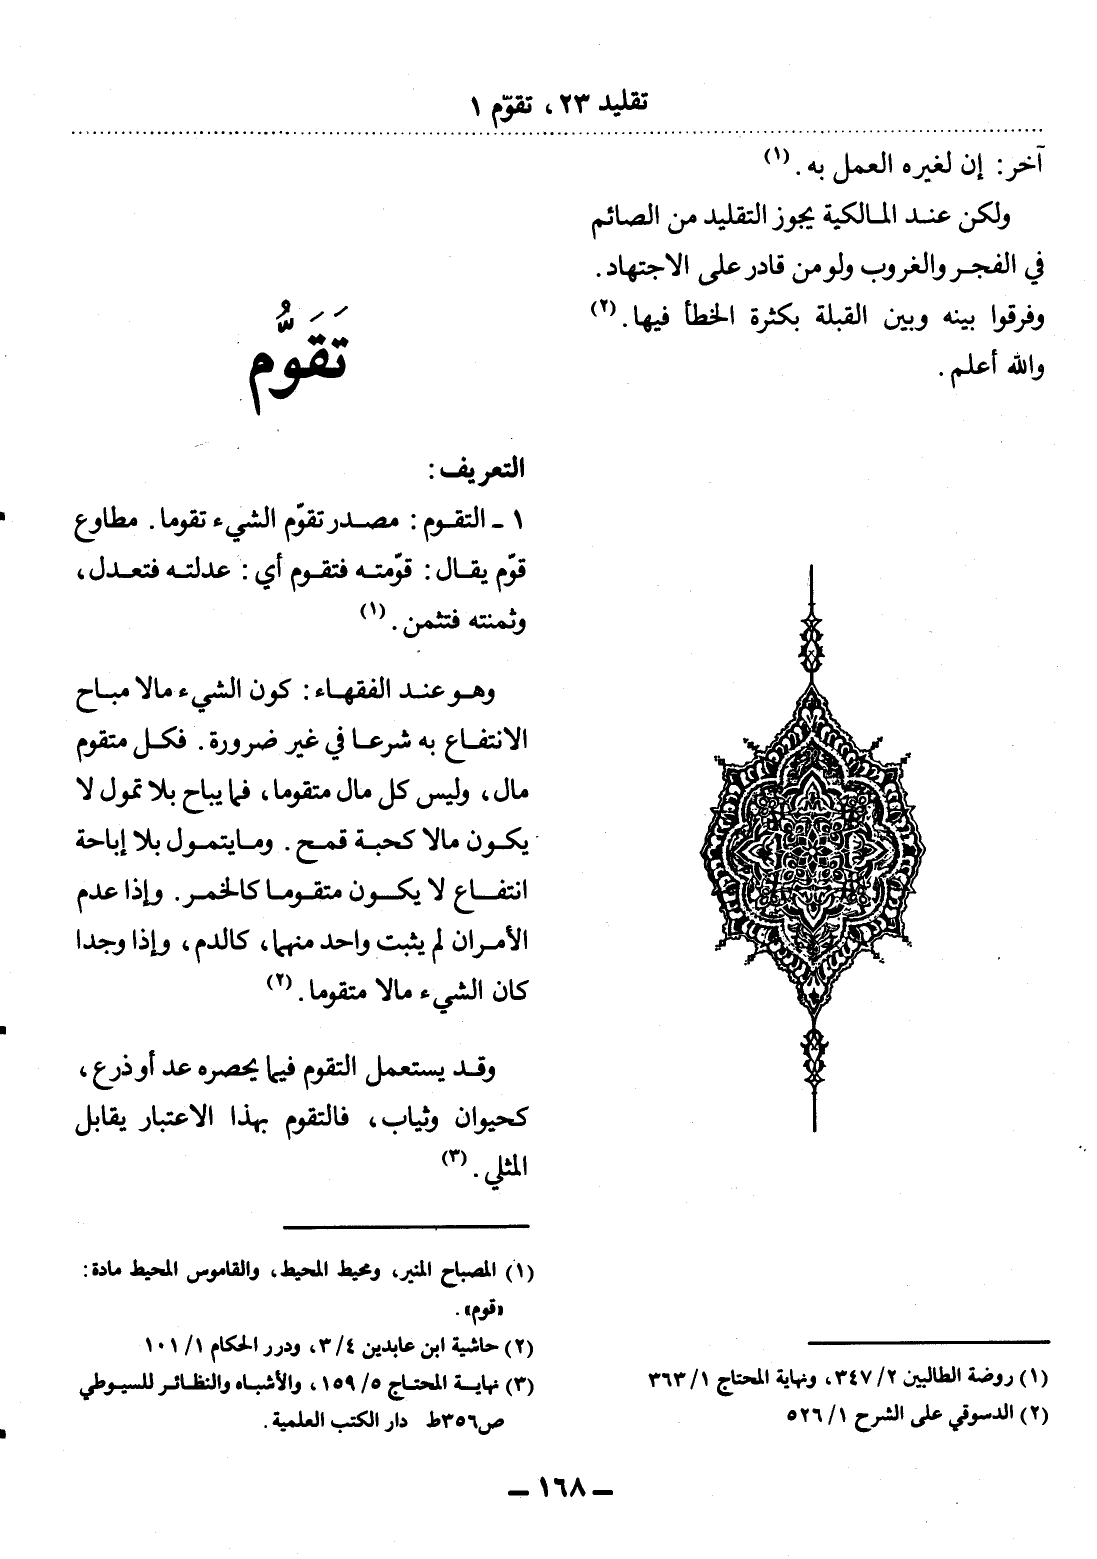 تقليد ٢٣ ، تقوّم ١
آخر : إن لغيره العمل به . (١)
ولكن عند المالكية يجوز التقليد من الصائم
في الفجر والغروب ولو من قادر على الاجتهاد .
وفرقوا بينه وبين القبلة بكثرة الخطأ فيها . (٢)
والله أعلم .
(١) روضة الطالبين ٢/ ٣٤٧، ونهاية المحتاج ١/ ٣٦٣
(٢) الدسوقي على الشرح ١/ ٥٢٦
تَقَوُّم
التعريف :
١ - التقوم : مصدر تقوّم الشيء تقوما . مطاوع
قوّم يقال : قوّمته فتقوم أي : عدلته فتعدل ،
وثمنته فتثمن . (١)
وهو عند الفقهاء : كون الشيء مالا مباح
الانتفاع به شرعا في غير ضرورة . فكل متقوم
مال ، وليس كل مال متقوما ، فما يباح بلا تمول لا
يكون مالا كحبة قمح . وما يتمول بلا إباحة
انتفاع لا يكون متقوما كالخمر . وإذا عدم
الأمران لم يثبت واحد منهما ، كالدم ، وإذا وجدا
كان الشيء مالا متقوما . (٢)
وقد يستعمل التقوم فيما يحصره عد أو ذرع ،
كحيوان وثياب ، فالتقوم بهذا الاعتبار يقابل
المثلي . (٣)
(١) المصباح المنير، ومحيط المحيط، والقاموس المحيط مادة :
«قوم» .
(٢) حاشية ابن عابدين ٤/ ٣، ودرر الحكام ١/ ١٠١
(٣) نهاية المحتاج ٥/ ١٥٩، والأشباه والنظائر للسيوطي
ص٣٥٦ط دار الكتب العلمية .
– ١٦٨ –